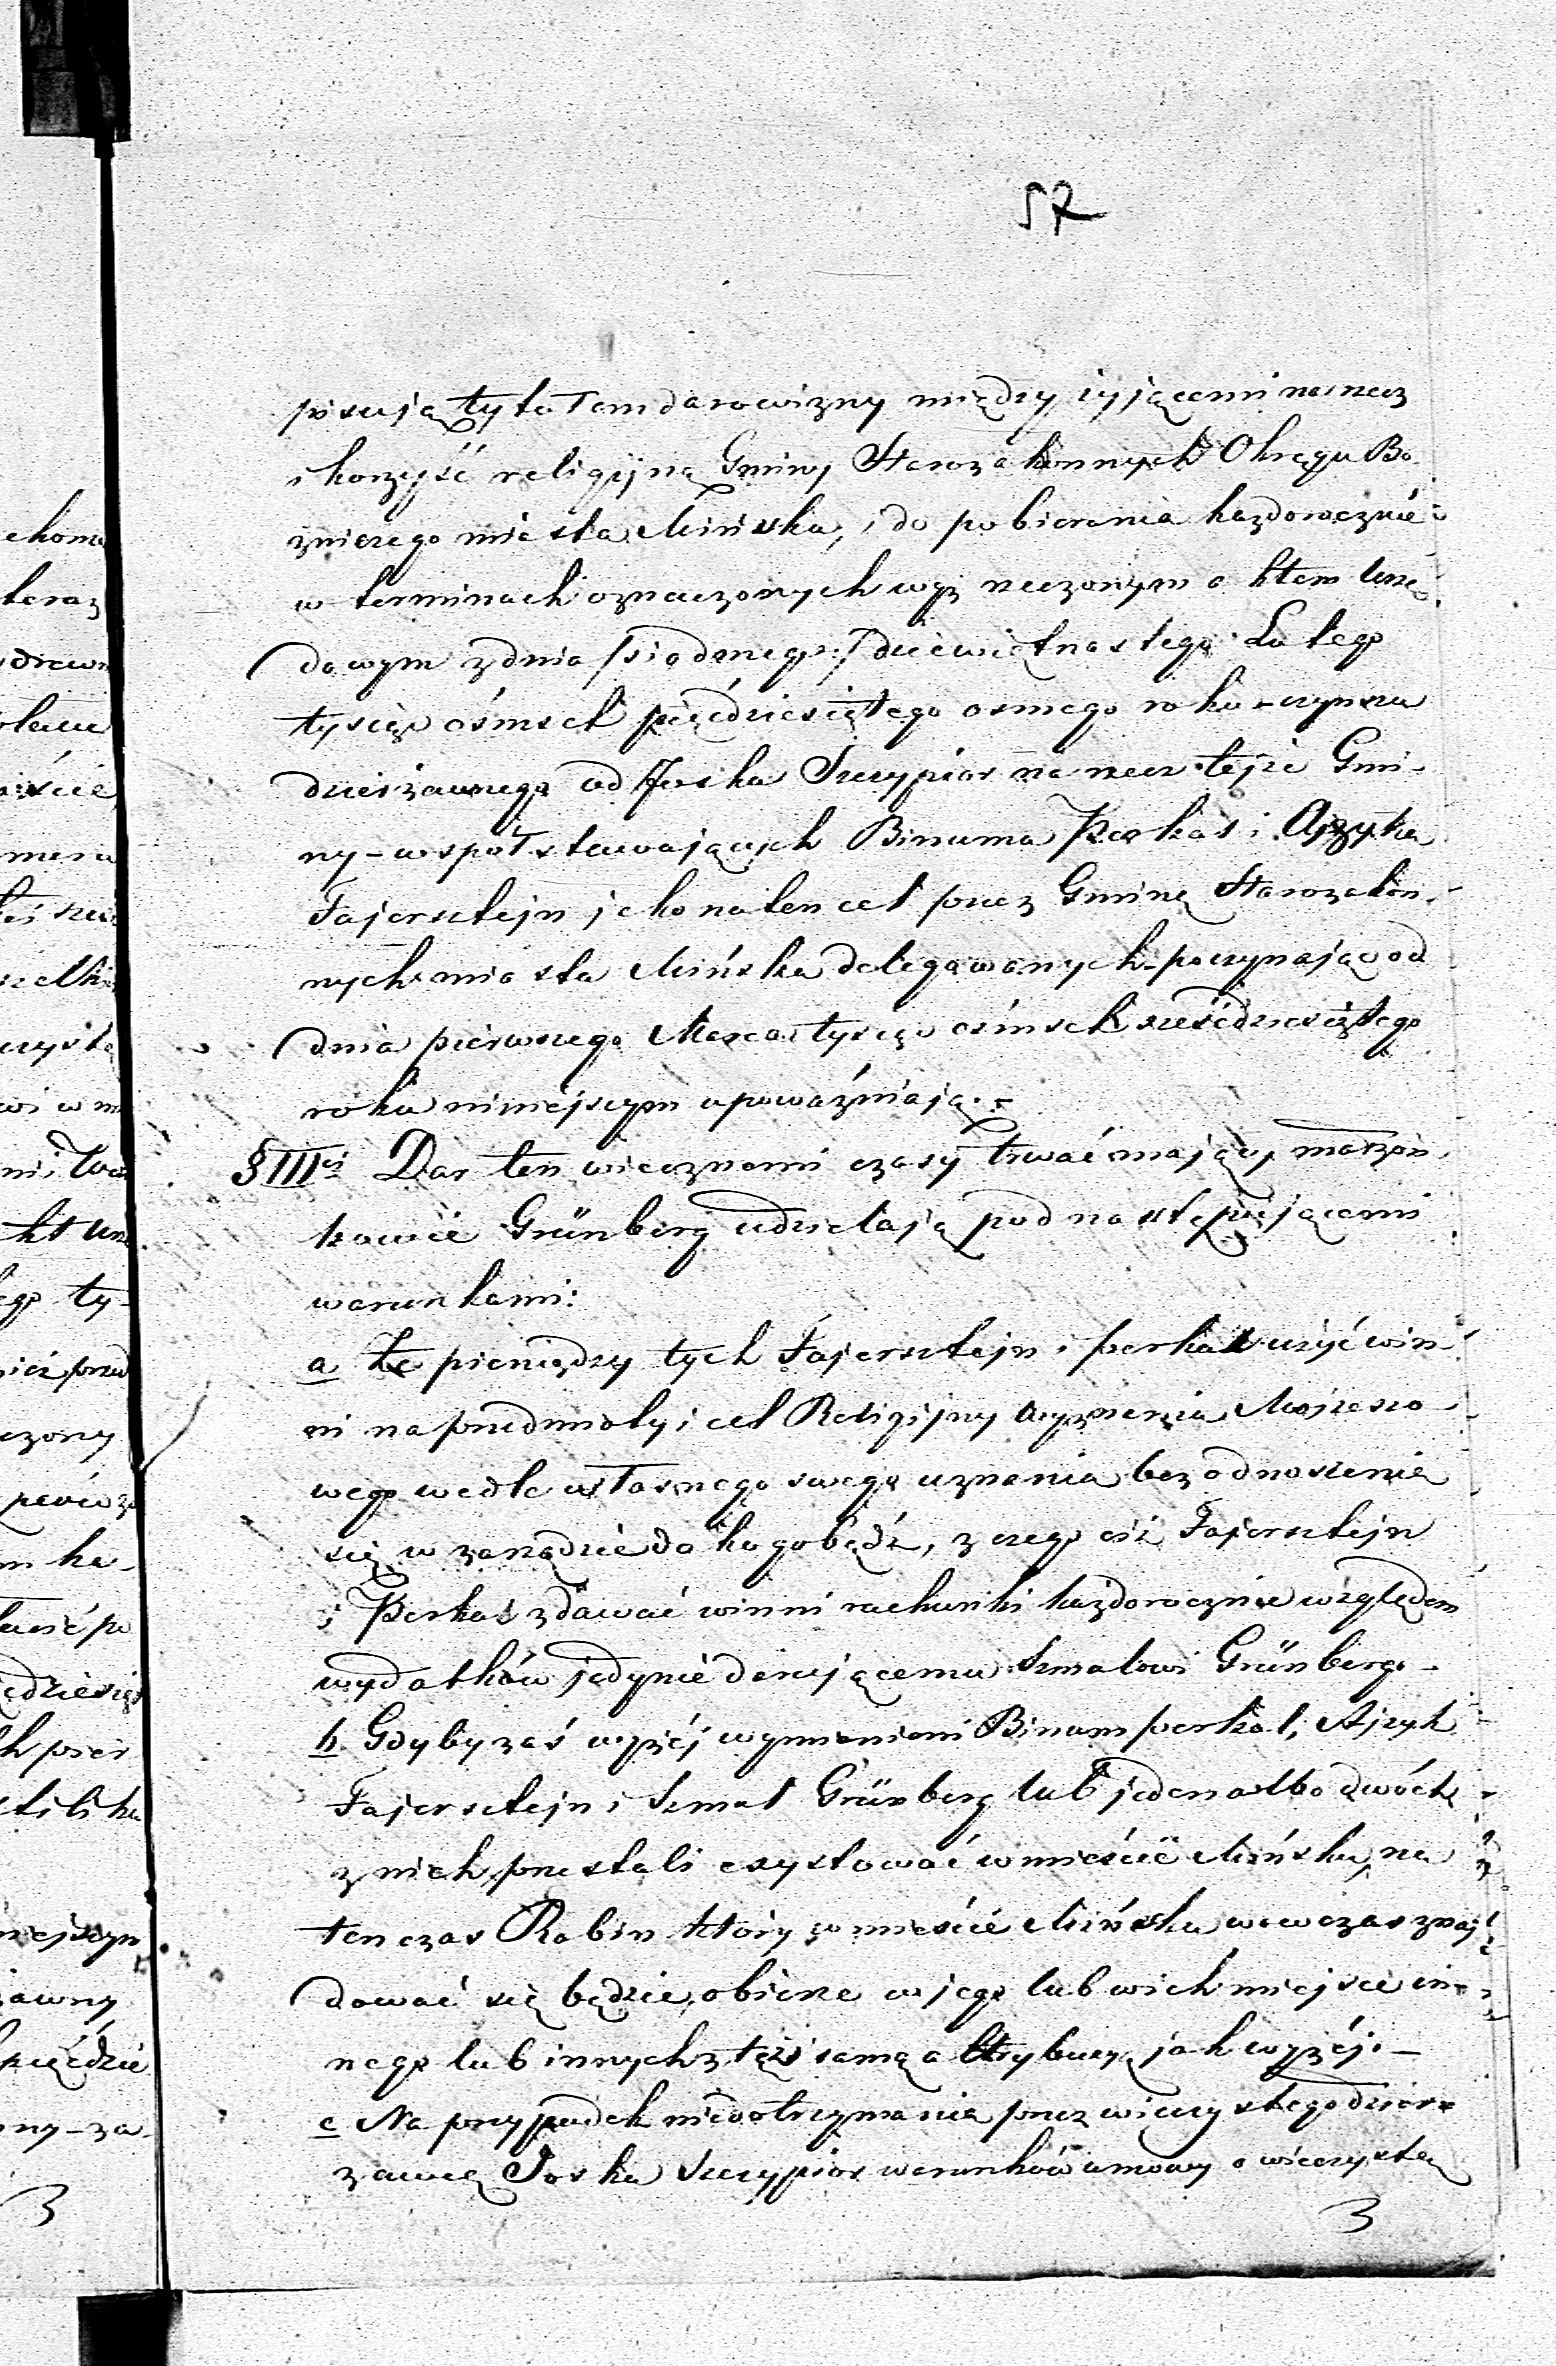 57
pisują tytułem darowizny między żyjącemi na rzecz
i korzyść religijną Gminy Starozakonnych Okręgu Bo
żniczego miasta Mińska, i do pobierania każdorocznie
w terminach oznaczonych wyż rzeczonym aktem Urzę
dowym z dnia /siodmego:/ dziewiętnastego Lutego
tysiąc ośmset pięćdziesiątego osmego roku czynszu
dzierżawnego od Joska Szczypior na rzecz tejże Gmi-
ny - współstawających Binuma Perkal i Ajzyka
Fajersztejn jako na ten cel przez Gminę Starozakon
nych miasta Mińska delegowanych - poczynając od
dnia pierwszego Marca tysiąc ośmset sześćdziesiątego
roku niniejszym upoważniają. -
§ IIIci Dar ten wiecznemi czasy trwać mający małżon
kowie Grünberg udzielają pod następującemi
warunkami:
a że pieniędzy tych Fajersztejn i Perkal użyć win
ni na przedmioty i cel Religijny wyznania Mojżeszo-
wego wedle własnego swego uznania bez odnoszenia
się w zarządzie do kogobądź, z czego ciż Fajersztejn
i Perkal zdawać winni rachunki każdorocznie względem
wydatków jedynie darującemu Szmulowi Grünberg. -
b Gdyby zaś wyżéj wymienieni Binum Perkal, Ajzyk
Fajersztejn i Szmul Grünberg lub jeden albo dwóch
z nich przestali exystować w mieście Mińsku, na
ten czas Rabin który w mieście Mińsku wówczas znaj
dować się będzie, obierze w jego lub w ich miejsce in-
nego lub innych z tąż samą attrybucyą jak wyżéj. -
c Na przypadek niedotrzymania przez wieczystego dzier
żawcę Joska Szczypior warunków umowy o wieczystą
3
3